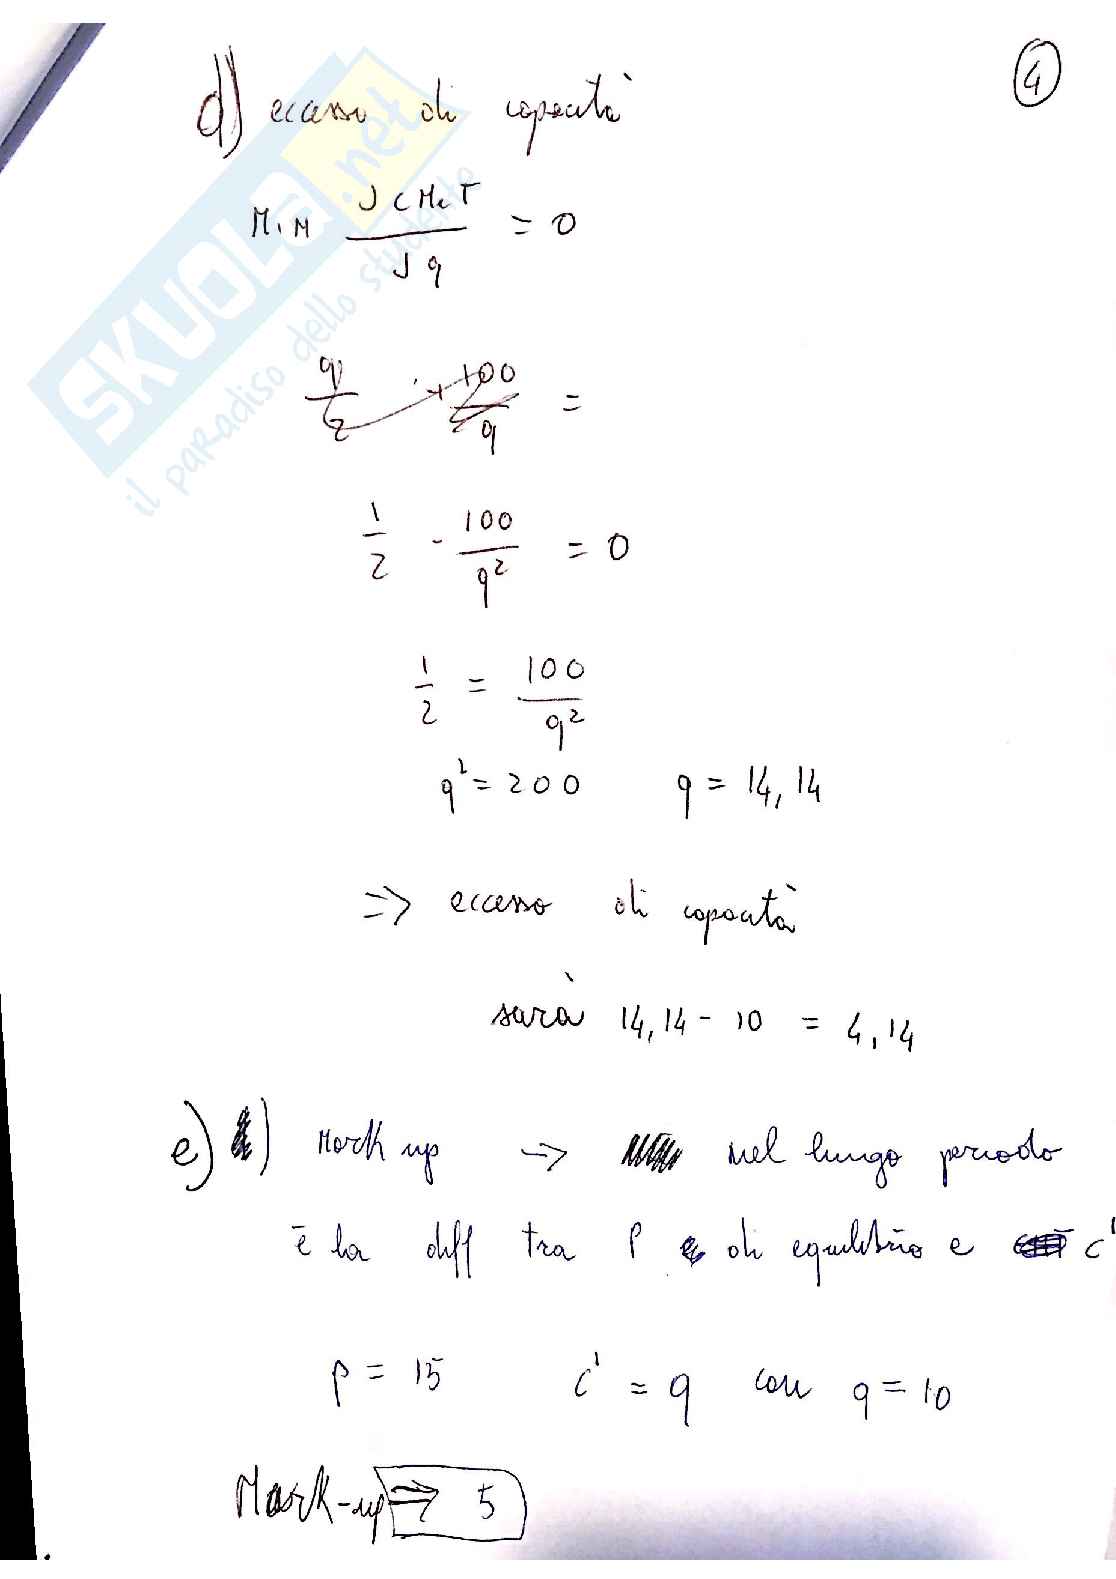 4
d) eccesso di capacità
MIN ∂CMeT/∂q = 0
q/2 + 100/q =
1/2 - 100/q² = 0
1/2 = 100/q²
q² = 200 q = 14,14
=> eccesso di capacità
sarà 14,14 - 10 = 4,14
e) Mark up -> nel lungo periodo
è la diff tra P di equilibrio e c'
p = 15 c' = q con q = 10
Mark-up => 5
SKUOLA.net
il paradiso dello studente